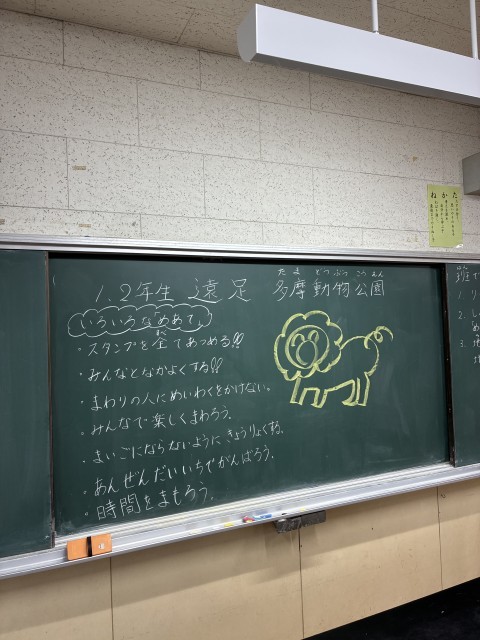 1.2年生 遠足 多摩動物公園
たま どうぶつ こうえん
いろいろな「めあて」
・スタンプを全てあつめる!!
すべ
・みんなとなかよくする!!
・まわりの人にめいわくをかけない。
・みんなで楽しくまわろう。
・まいごにならないように きょうりょくする。
・あんぜんだいいちでがんばろう。
・時間をまもろう。
班で
1. リ
2. し
3. 地
たかねか